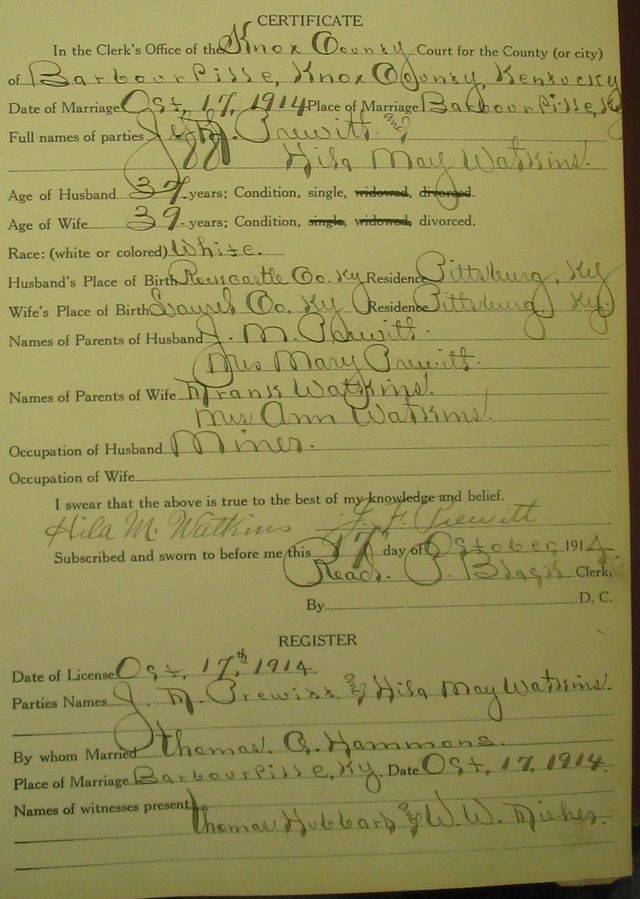 CERTIFICATE
In the Clerk's Office of the Knox County Court for the County (or city)
of Barbourville, Knox County, Kentucky
Date of Marriage Oct, 17, 1914 Place of Marriage Barbourville, Ky
Full names of parties J. Prewitt and
Hila May Watkins.
Age of Husband 37 years; Condition, single, widowed, divorced.
Age of Wife 39 years; Condition, single, widowed, divorced.
Race: (white or colored) White.
Husband's Place of Birth Rockcastle Co. Ky Residence Pittsburg, Ky
Wife's Place of Birth Laurel Co. Ky Residence Pittsburg, Ky.
Names of Parents of Husband J. M. Prewitt.
Mrs Mary Prewitt.
Names of Parents of Wife Frank Watkins.
Mrs Ann Watkins.
Occupation of Husband Miner.
Occupation of Wife
I swear that the above is true to the best of my knowledge and belief.
Hila M. Watkins J. F. Prewitt
Subscribed and sworn to before me this 17 day of October, 1914.
Read P. Black Clerk,
By D. C.
REGISTER
Date of License Oct, 17,th 1914.
Parties Names J. Prewitt & Hila May Watkins.
By whom Married Thomas. Hammons.
Place of Marriage Barbourville, Ky. Date Oct, 17, 1914.
Names of witnesses present
Thomas Hubbard & W. W.